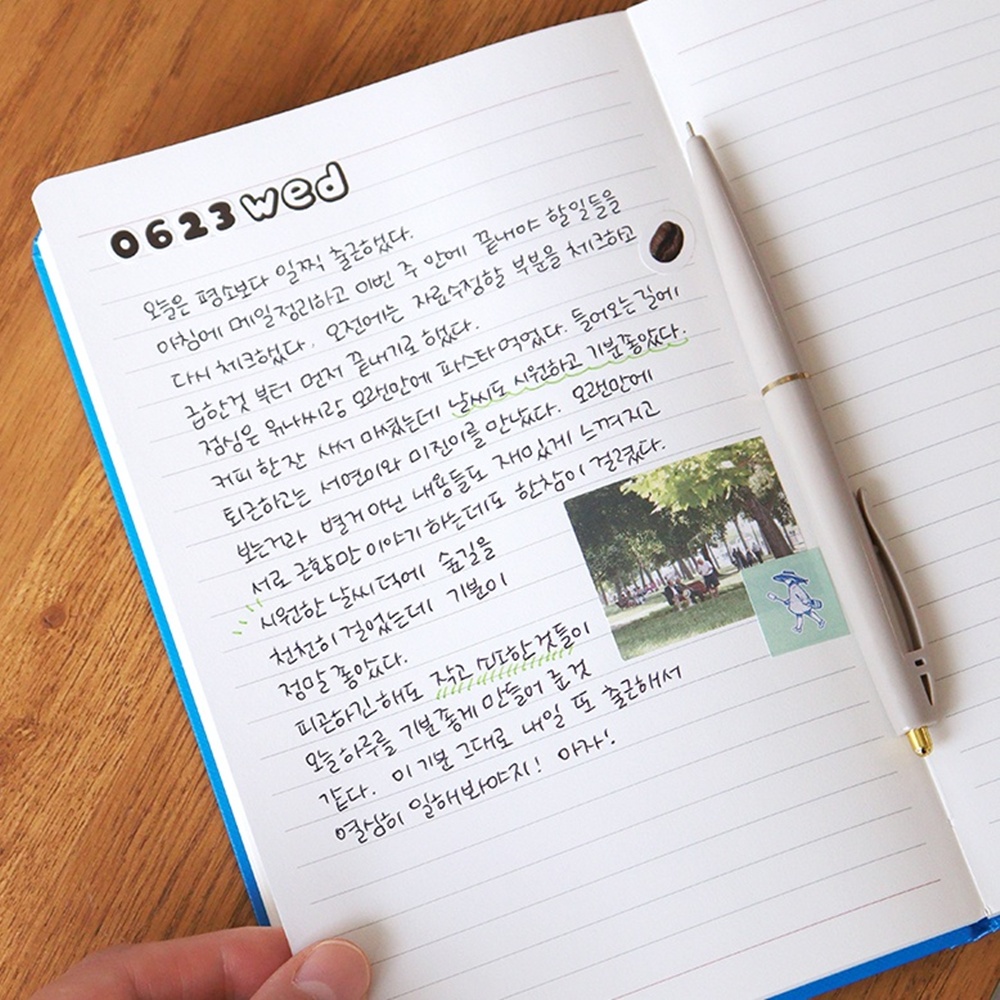 0623 wed
오늘은 평소보다 일찍 출근했다.
아침에 메일정리하고 이번 주 안에 끝내야 할일들을
다시 체크했다. 오전에는 자료수정할 부분을 체크하고
급한것 부터 먼저 끝내기로 했다.
점심은 유나씨랑 오랜만에 파스타 먹었다. 들어오는 길에
커피 한잔 새서 마셨는데 날씨도 시원하고 기분좋았다.
퇴근하고는 서연이와 미진이를 만났다. 오랜만에
보는거라 별거 아닌 내용들도 재미있게 느껴지고
서로 근황만 이야기 하는데도 한참이 걸렸다.
시원한 날씨덕에 숲길을
천천히 걸었는데 기분이
정말 좋았다.
피곤하긴해도 작고 따뜻한것들이
오늘하루를 기분좋게 만들어 준 것
같다. 이 기분 그대로 내일 또 출근해서
열심히 일해봐야지! 아자!